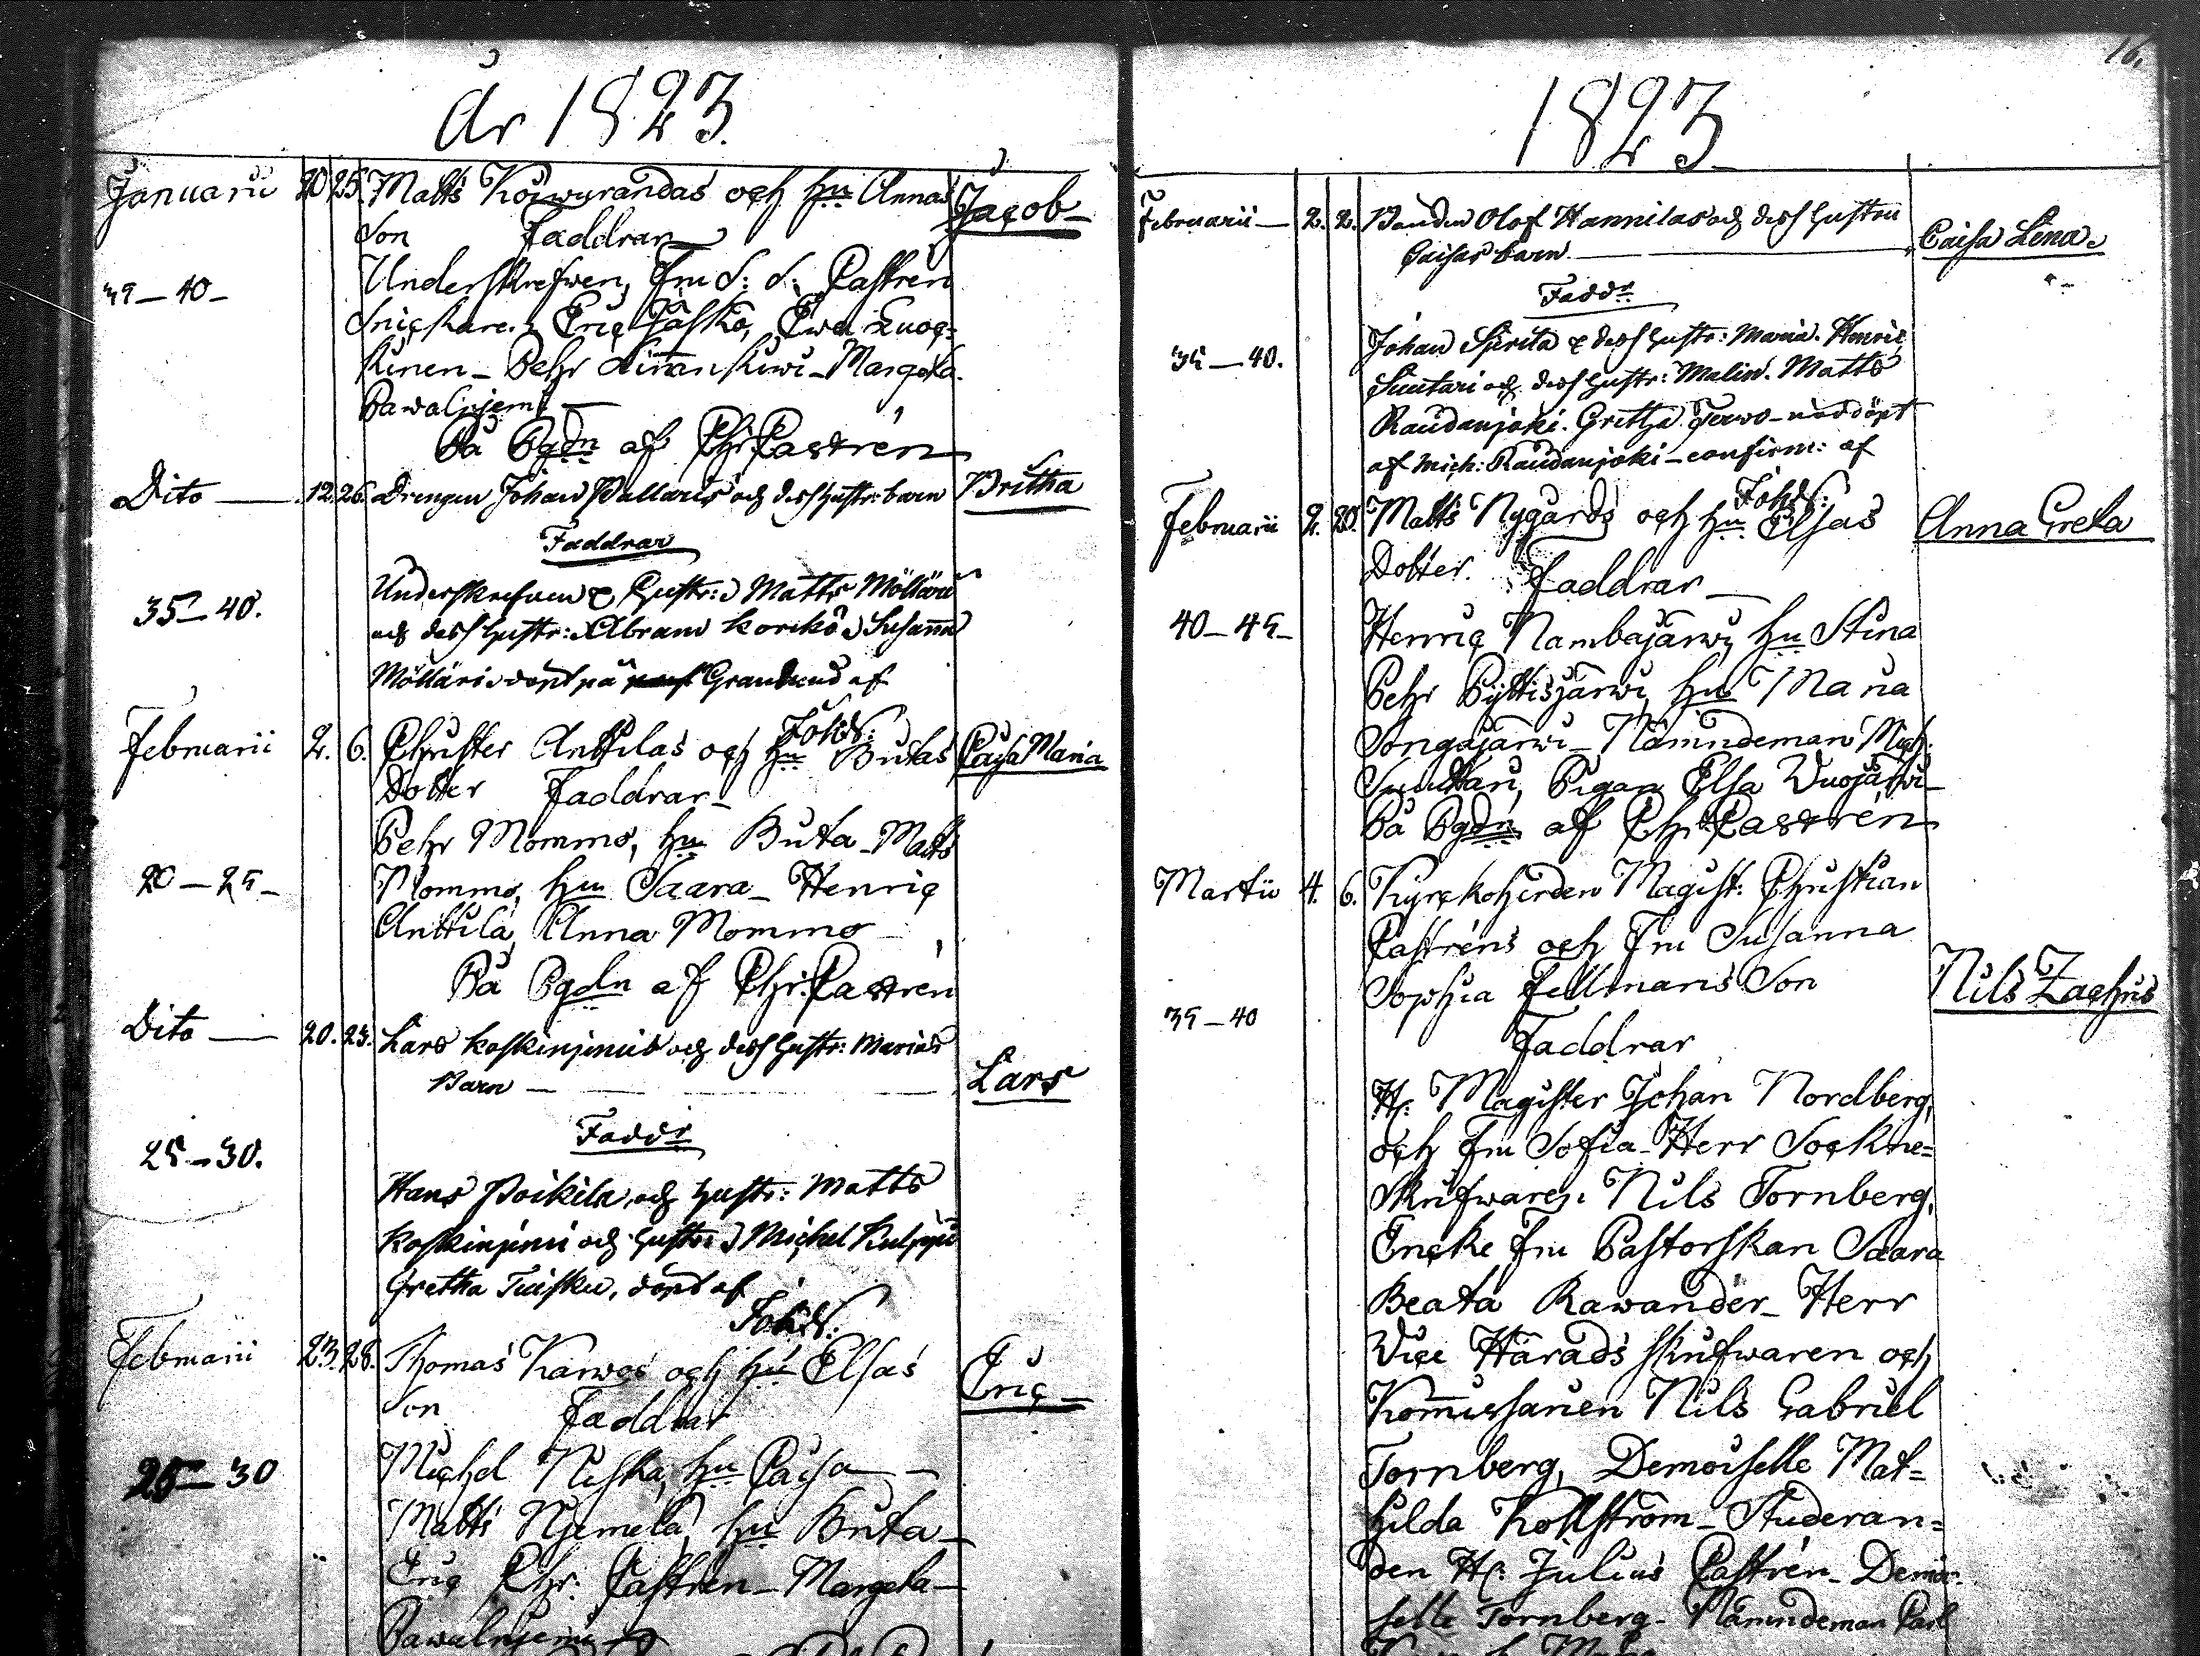 År 1823.
Januarii 20 25. Matts Koiwurandas och hu Annas Jacob
Son Faddrar
39–40– Underskrefwen, fru S: S: Castrén
Snickare. Eric Jäskö, Ewa Luoc-
kinen – Pehr Limankiwi – Margeta
Pawalnjemi
På Pgdn af Chr: Castrén
Dito 12. 26. Drengen Johan Pallaris och dess hustr: barn Britha
Faddrar
35–40. Underskrefwen & hustr: Matts Mölläri
och dess hustr: Abram Korikö, Susanna
Mölläri, döpt på Grankund af
Februarii 2. 6. Christer Anttilas och hu Britas Cajsa Maria
Dotter Faddrar –
Pehr Mommo, hu Brita – Matts
20–25– Mommo, hu Saara – Henric
Anttila, Anna Mommo
På Pgdn af Chr: Castrén
Dito 20. 23. Lars Koskinjemis och dess hustr: Marias Lars
Barn –
Fadd:r
25–30. Hans Poikila, och hustr: Matts
Koskinjemi och hustr: Michel
Gretha Tuisku, döpt af
Februarii 23. 28. Thomas Karwos och hu Elsas Eric
Son Faddrar
25–30 Michel Niska, hu Caisa –
Matts Njemelä, hu Brita –
Eric Chr: Castrén – Margeta –
Pawalnjemi
16.
1823
Februarii – 2. 2. Bonden Olof Hannilas och dess hustru Caisa Lena.
Caisas barn.
Fadd:r
35–40. Johan Spirita & dess hustr: Maria. Henric
Suutari och dess hustr: Malin. Matts
Raudanjoki. Gretha Terwo – nöddöpt
af Mich: Raudanjoki – confirm: af
Februarii 2. 20. Matts Nygårds och hu Elsas Anna Greta
Dotter. Faddrar –
40–45– Henric Nambajärwi, hu Stina
Pehr Pyttisjärwi, hu Maria
Songajärwi – Nämndeman Mich:
Suuttari, Pigan Elsa Wuojärwi –
På Pgdn af Chr: Castrén
Martii 4. 6. Kyrckoherden Magist: Christian
Castréns och fru Susanna
Sophia Fellmans Son Nils Zachris
35–40
Faddrar
Hr. Magister Johan Nordberg,
och fru Sofia – Herr Sockne-
Skrifwaren Nils Tornberg,
Encke fru Pastorskan Saara
Beata Rawander – Herr
Vice Härads skrifwaren och
Kommissarien Nils Gabriel
Tornberg, Demoiselle Mat-
hilda Kohlström – Studeran-
den Hr. Julius Castrén – Demoi-
selle Tornberg – Nämndeman Carl